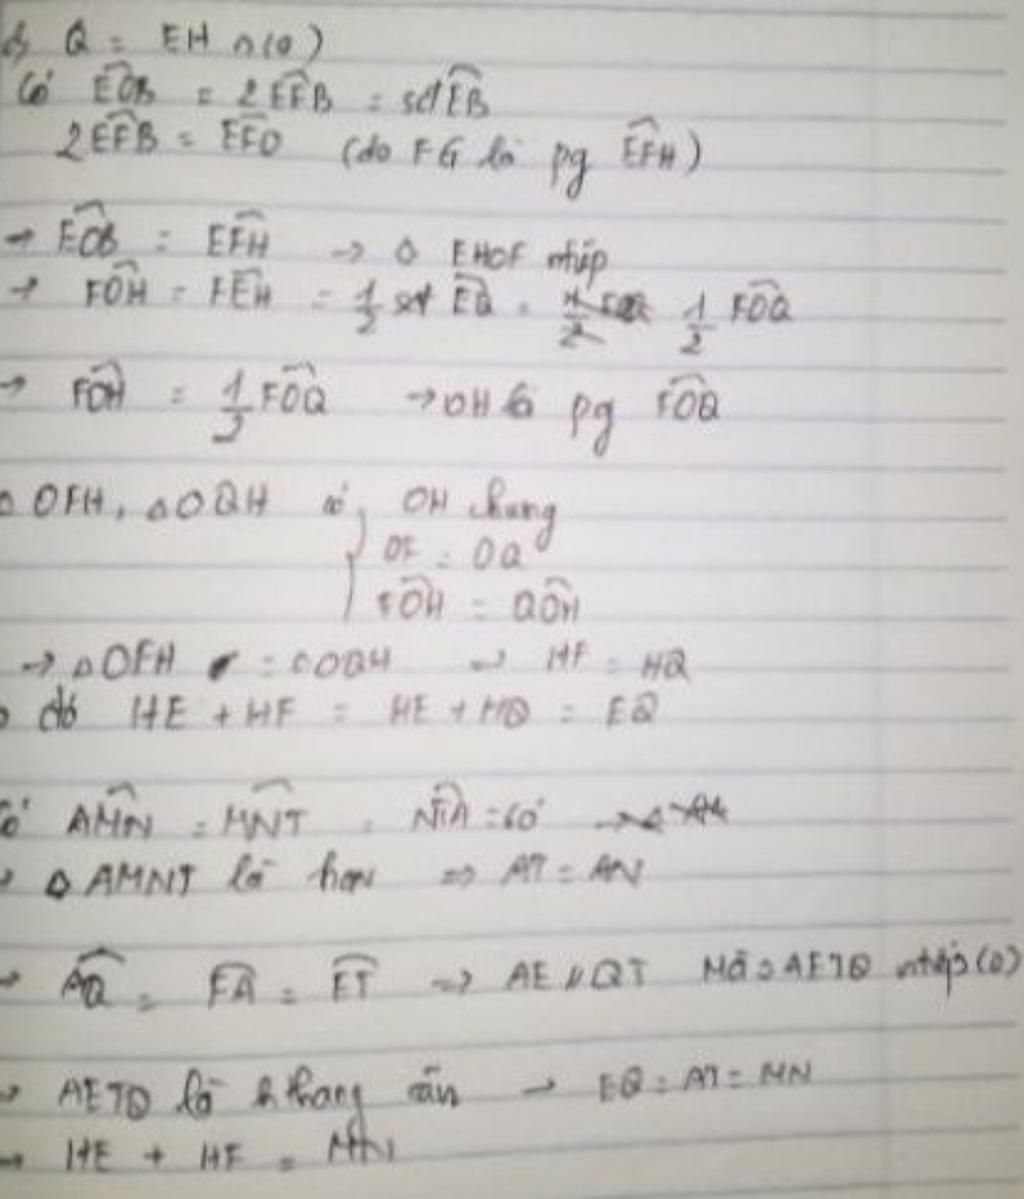 Q = EH ∩ (O)
Có EOB = 2EFB = sđ EB
2EFB = EFO (do FG là pg EFH)
→ EOB = EFH → ◊ EHOF ntiếp
→ FOH = FEH = 1/2 sđ EQ = 1/2 FOQ
→ FOH = 1/2 FOQ → OH là pg FOQ
OFH, △OQH có OH chung
OF = OQ
FOH = QOH
→ △OFH = △OQH → HF = HQ
đó HE + HF = HE + HQ = EQ
Có AMN = MNT = NTA = 60°
◊ AMNT là hcn ⇒ AT = AN
→ AQ = FA = ET ⇒ AE // QT Mà ◊ AETQ ntiếp (O)
→ AETQ là hthang cân → EQ = AT = MN
→ HE + HF = MN